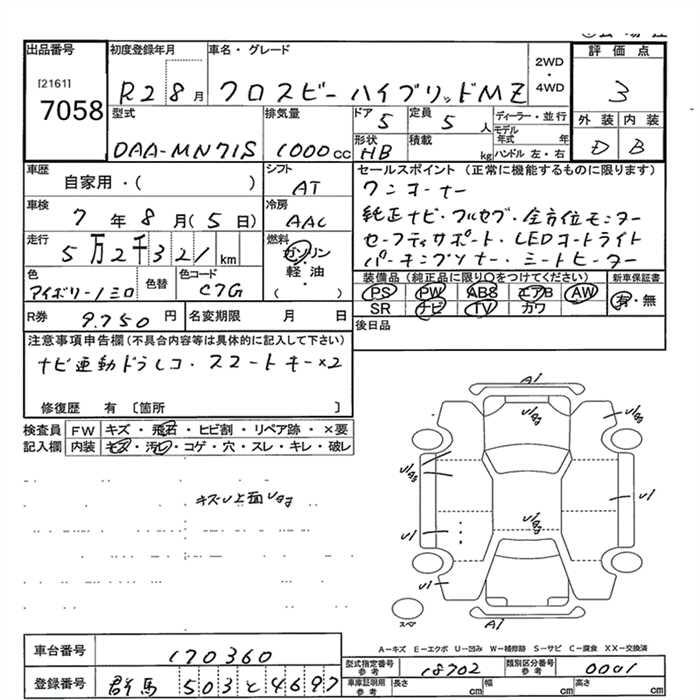 出品番号 初度登録年月 車名・グレード 2WD・4WD 評価点
[2161]
7058 R2 8月 クロスビー ハイブリッドMZ 3
型式 排気量 ドア 5 定員 5人 ディーラー・並行 外装 内装
モデル年式 年
DAA-MN71S 1000cc 形状 HB 積載 kg ハンドル 左・右 D B
車歴 シフト セールスポイント (正常に機能するものに限ります)
自家用・( ) AT ワンオーナー
車検 冷房 純正ナビ・フルセグ・全方位モニター
7年8月(5日) AAC セーフティサポート・LEDコートライト
走行 燃料 パーキングソナー・シートヒーター
5万2千321km ガソリン
軽油
( )
色 色替 色コード 装備品 (純正品に限り〇をつけてください) 新車保証書
アイボリー/ミロ C7G PS PW ABS エアB AW 有・無
SR ナビ TV カワ
R券 9.750円 名変期限 月 日 後日品
注意事項申告欄 (不具合内容等は具体的に記入して下さい)
ナビ連動ドラレコ・スマートキー×2
修復歴 有 〔箇所 〕
検査員 FW キズ・飛石・ヒビ割・リペア跡・×要
記入欄 内装 キズ・汚れ・コゲ・穴・スレ・キレ・破レ
キズU上面UAg
A1
U/Ag
U/Ag
U/Ag
U1
U/Ag
U1
U1
スペア
A1
A-キズ E-エクボ U-凹み W-補修跡 S-サビ C-腐食 XX-交換済
車台番号 170360
型式指定番号 参考 18702 類別区分番号 参考 0001
登録番号 群馬 503 と 4697
車庫証明用 参考 長さ cm 幅 cm 高さ cm